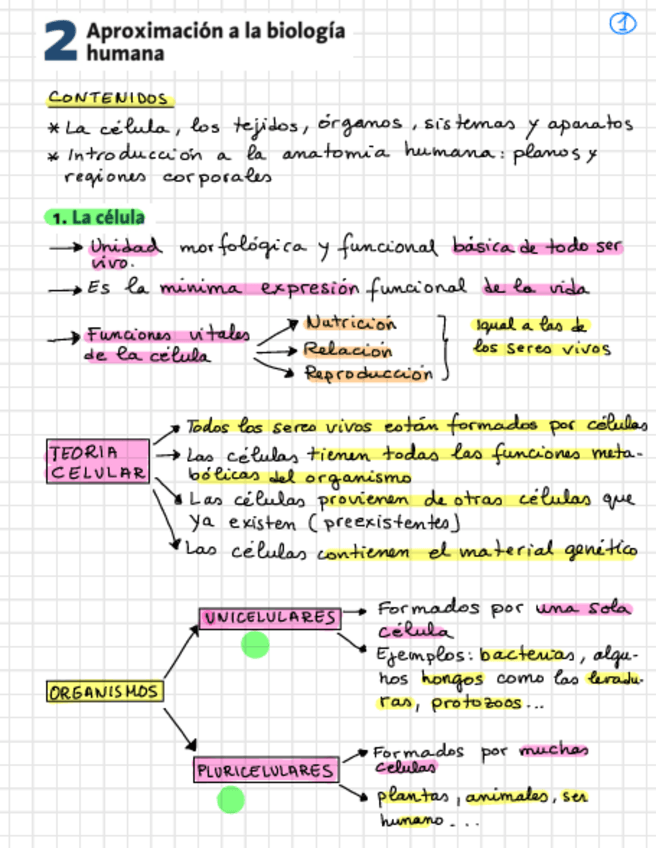 1
2 Aproximación a la biología
humana
CONTENIDOS
* La célula, los tejidos, órganos, sistemas y aparatos
* Introducción a la anatomía humana: planos y
regiones corporales
1. La célula
→ Unidad morfológica y funcional básica de todo ser
vivo.
→ Es la mínima expresión funcional de la vida
→ Funciones vitales
de la célula
→ Nutrición
→ Relación
→ Reproducción
igual a las de
los seres vivos
TEORIA
CELULAR
→ Todos los seres vivos están formados por células
→ Las células tienen todas las funciones meta-
bólicas del organismo
→ Las células provienen de otras células que
ya existen (preexistentes)
→ Las células contienen el material genético
ORGANISMOS
UNICELULARES
→ Formados por una sola
célula
→ Ejemplos: bacterias, algu-
nos hongos como las levadu-
ras, protozoos...
PLURICELULARES
→ Formados por muchas
células
→ plantas, animales, ser
humano....